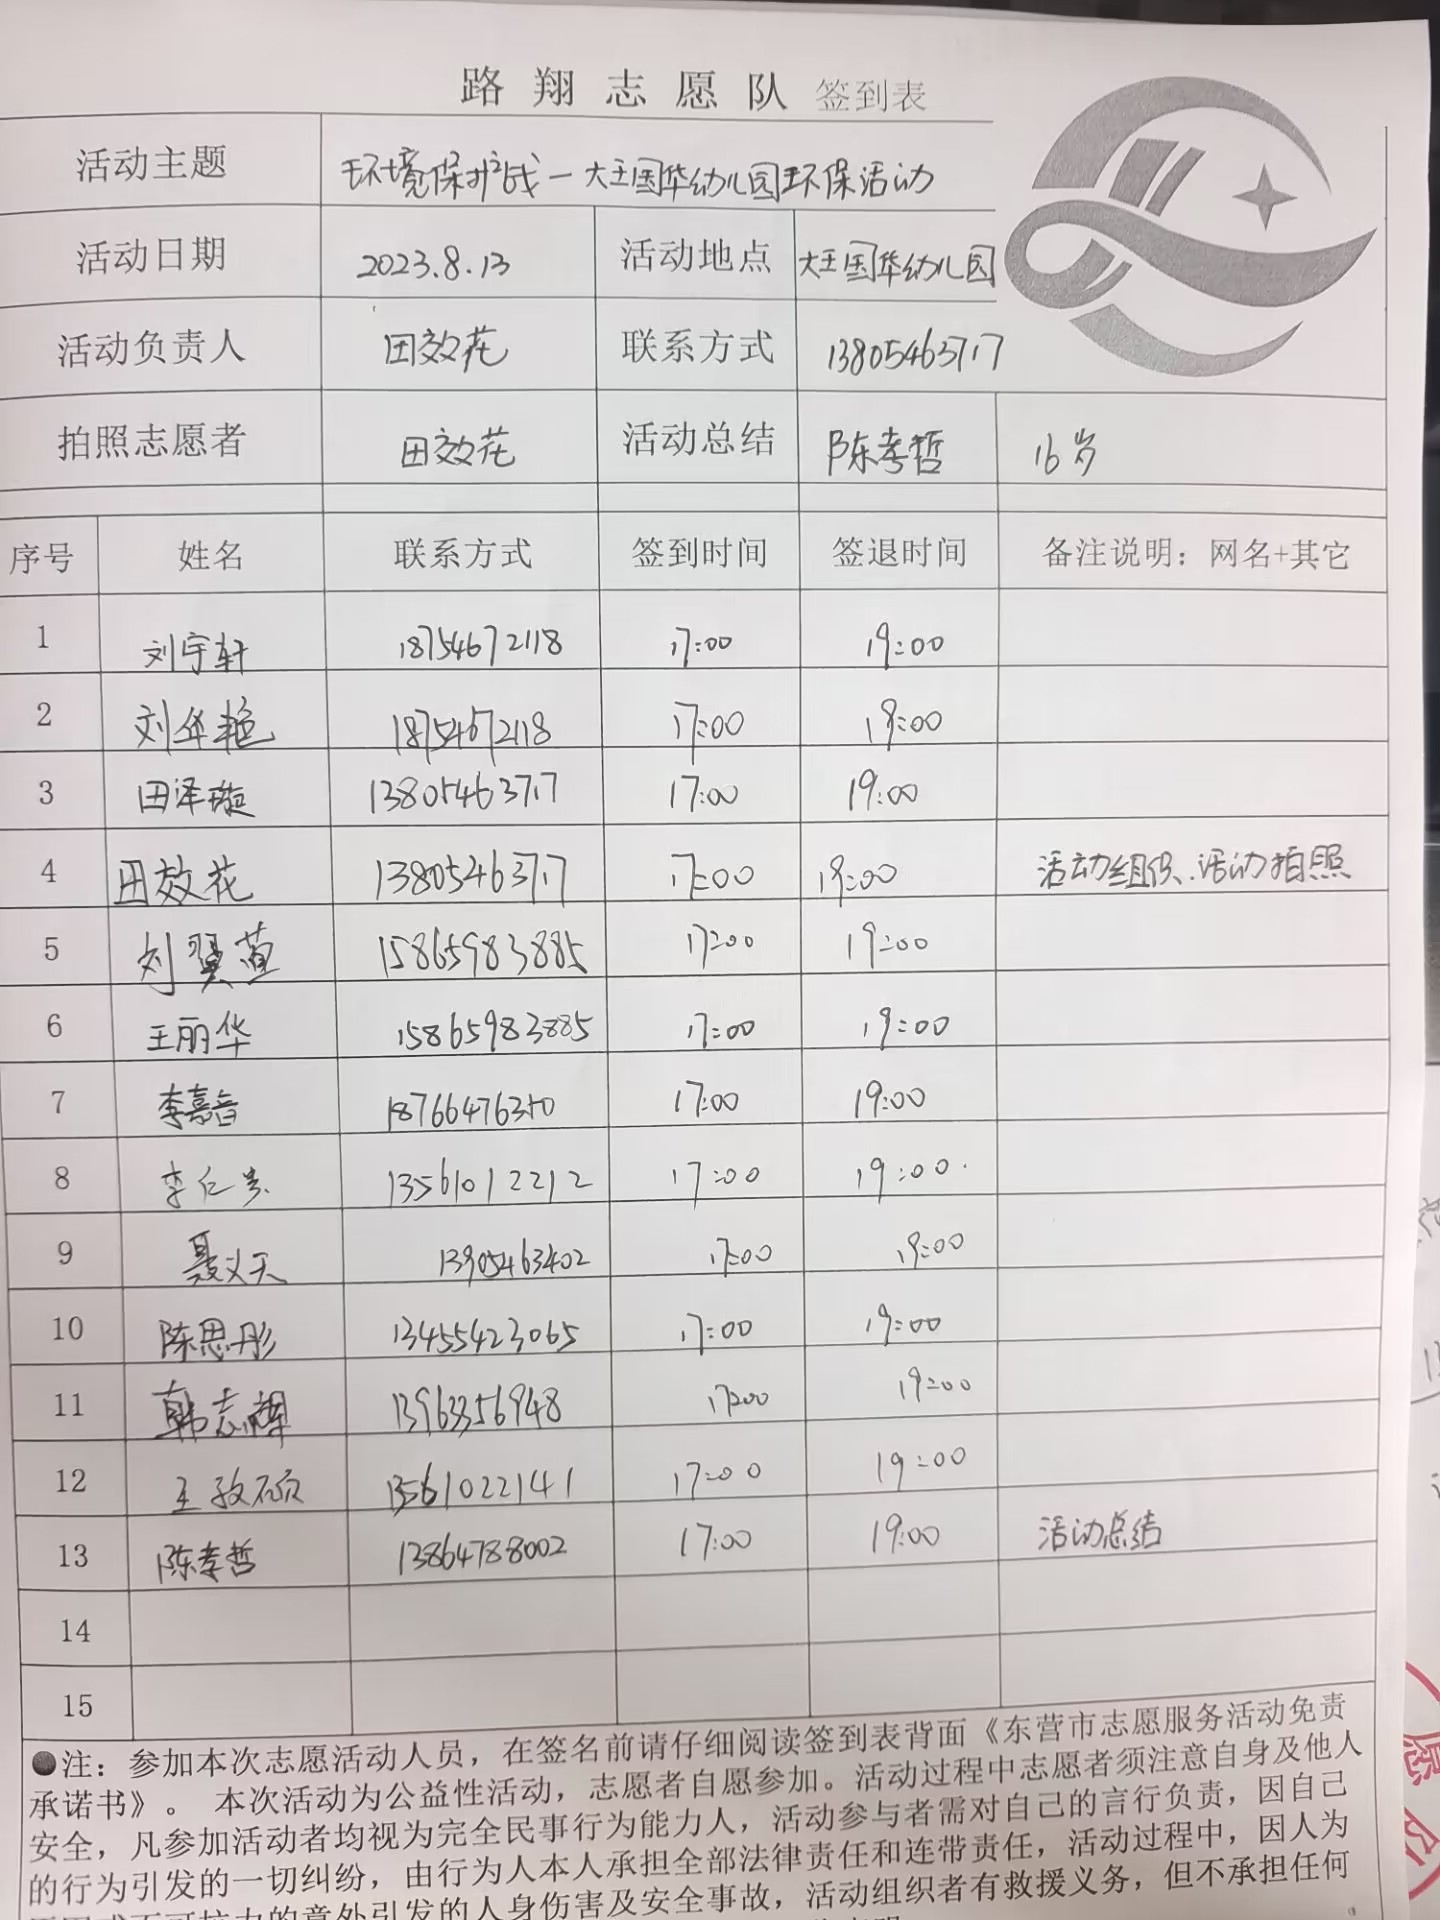 路翔志愿队 签到表
活动主题 环境保护战一大王国华幼儿园环保活动
活动日期 2023.8.13 活动地点 大王国华幼儿园
活动负责人 田效花 联系方式 13805463717
拍照志愿者 田效花 活动总结 陈孝哲 16岁
序号 姓名 联系方式 签到时间 签退时间 备注说明：网名+其它
1 刘宇轩 18754672118 17:00 19:00
2 刘华艳 18754672118 17:00 19:00
3 田泽璇 13805463717 17:00 19:00
4 田效花 13805463717 17:00 19:00 活动组织、活动拍照
5 刘翼萱 15865983885 17:00 19:00
6 王丽华 15865983885 17:00 19:00
7 李嘉音 18766476350 17:00 19:00
8 李仁 13561012212 17:00 19:00
9 聂义天 13905463402 17:00 19:00
10 陈思彤 13455423065 17:00 19:00
11 韩志樽 13963356948 17:00 19:00
12 王孜硕 13561022141 17:00 19:00
13 陈孝哲 13864788002 17:00 19:00 活动总结
14
15
●注：参加本次志愿活动人员，在签名前请仔细阅读签到表背面《东营市志愿服务活动免责
承诺书》。 本次活动为公益性活动，志愿者自愿参加。活动过程中志愿者须注意自身及他人
安全，凡参加活动者均视为完全民事行为能力人，活动参与者需对自己的言行负责，因自己
的行为引发的一切纠纷，由行为人本人承担全部法律责任和连带责任，活动过程中，因人为
的意外引发的人身伤害及安全事故，活动组织者有救援义务，但不承担任何
愿